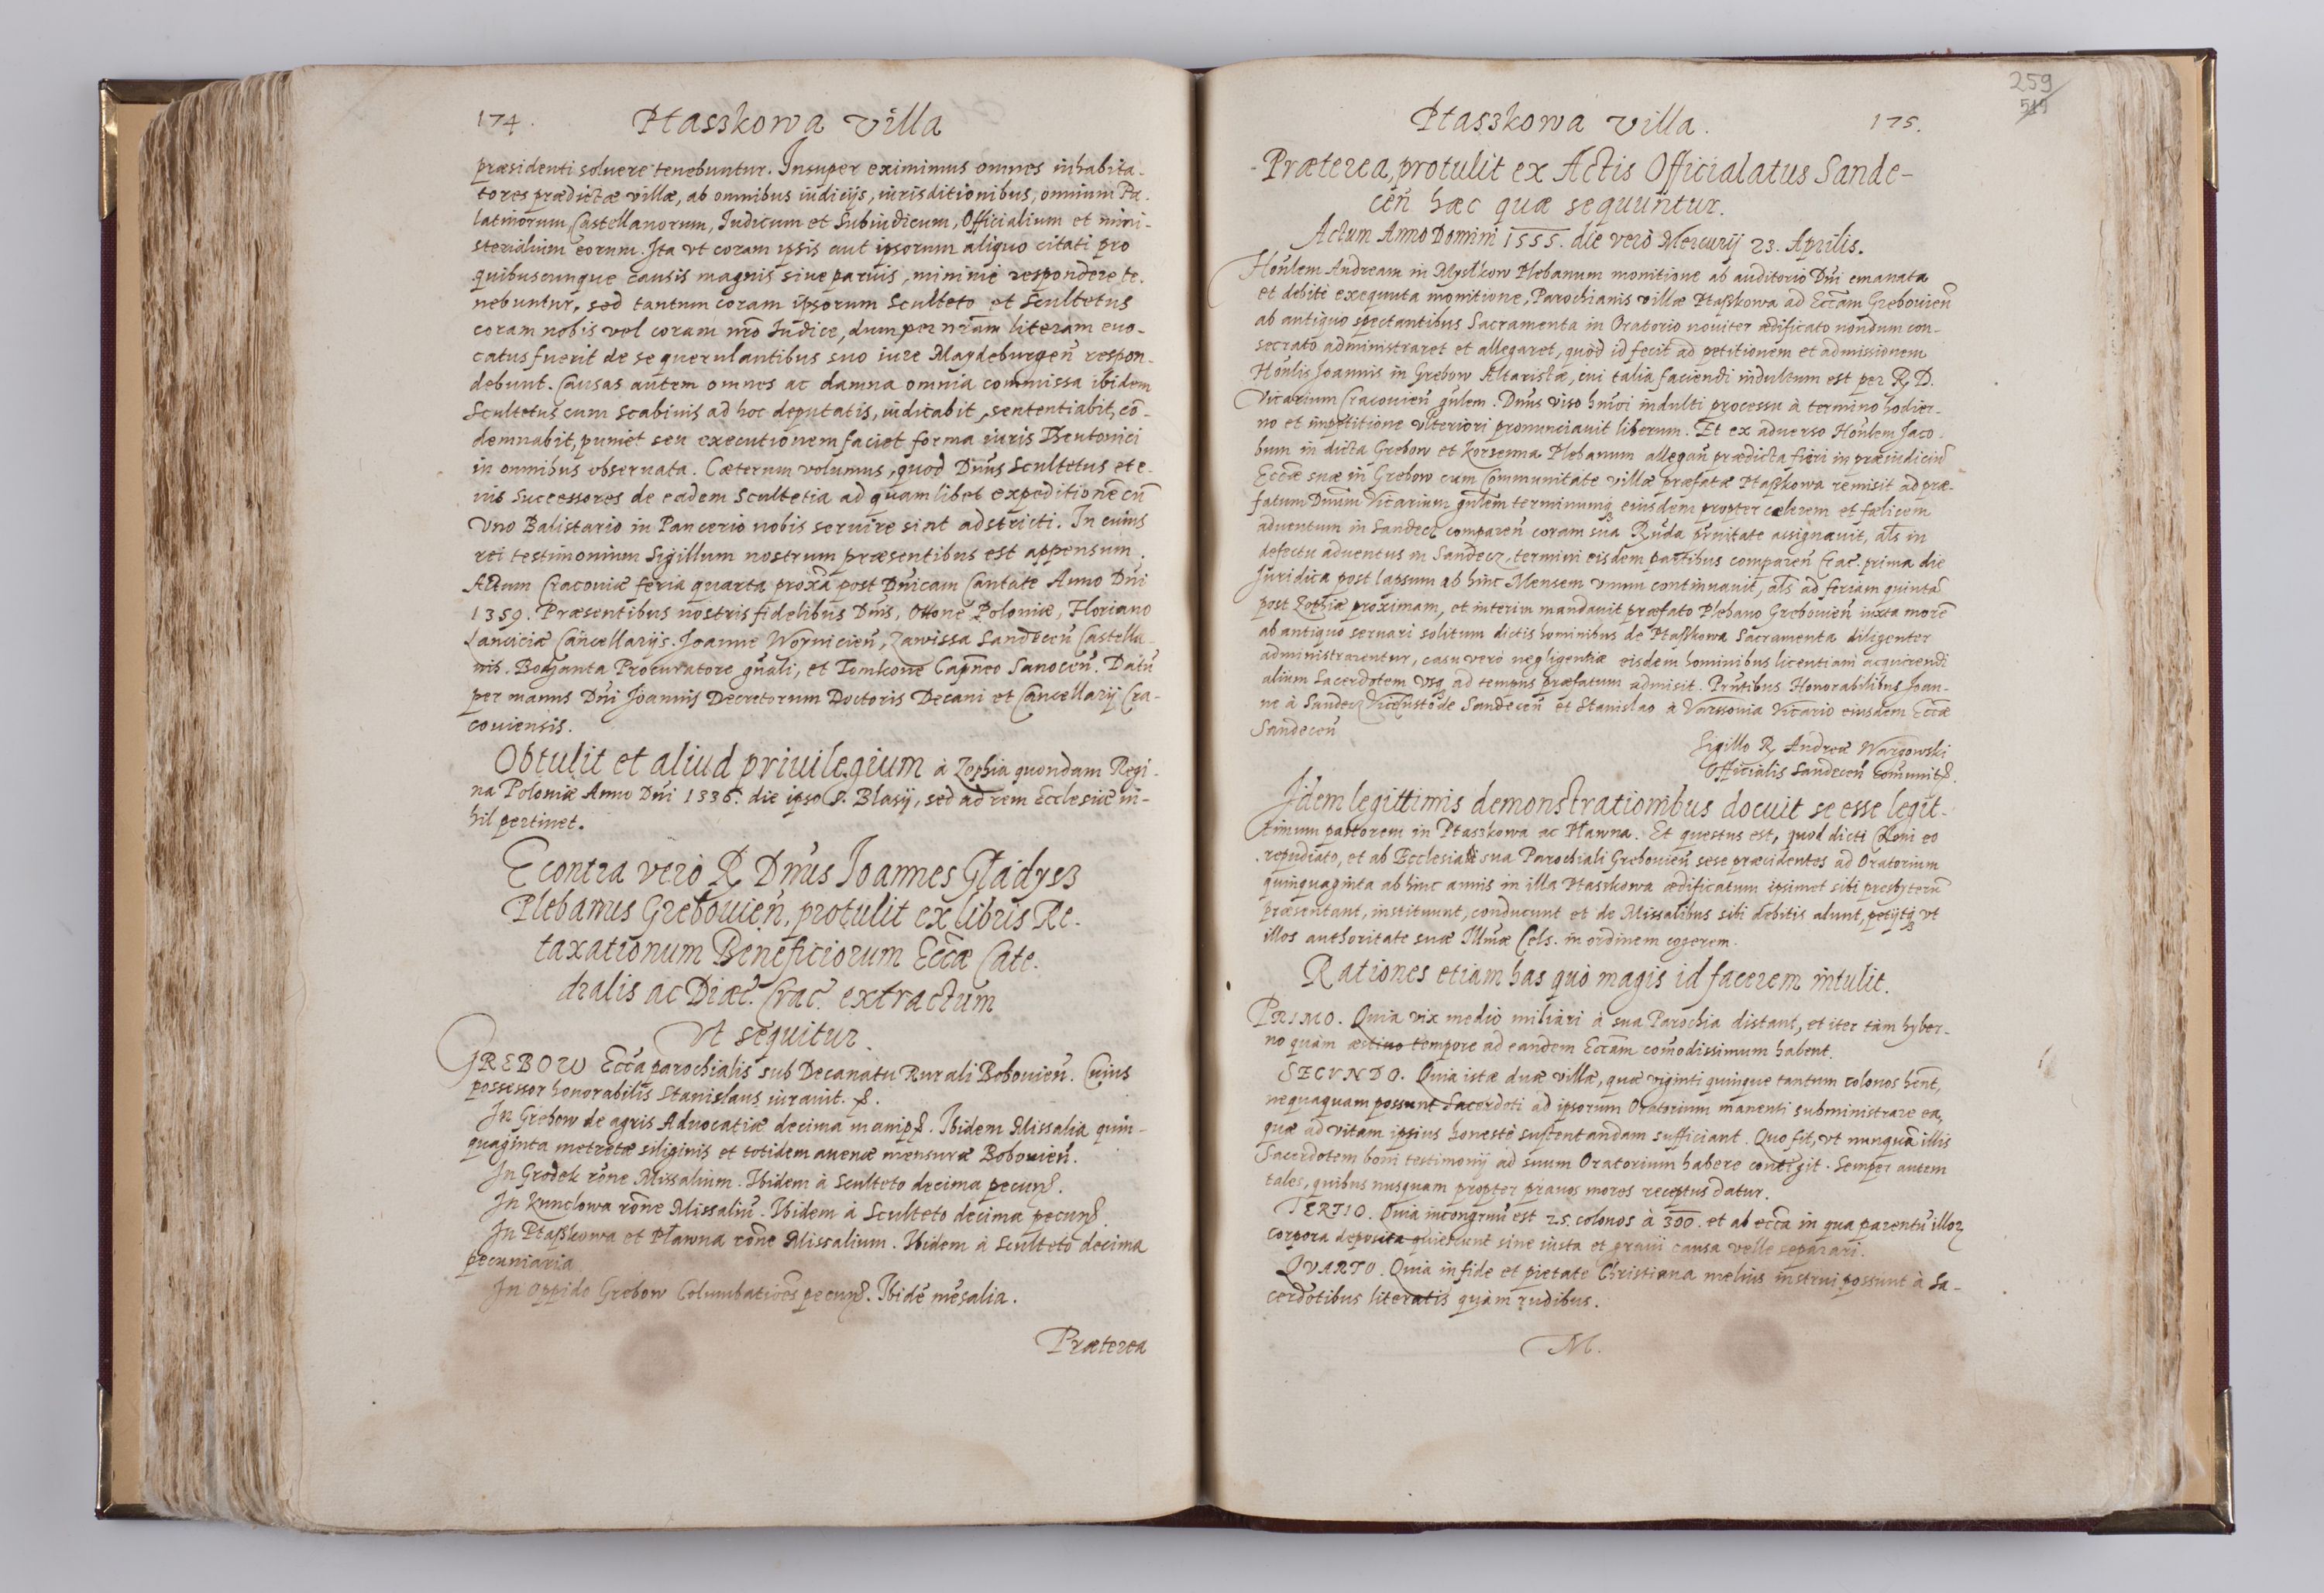 174.
Ptaszkowa villa
præsidenti soluere tenebuntur. Insuper eximimus omnes inhabita-
tores prædictæ villæ, ab omnibus iudicijs, iurisditionibus, omnium Pa-
latinorum, Castellanorum, Iudicum et Subiudicum, Officialium et mini-
sterialium eorum. Ita vt coram ipsis aut ipsorum aliquo citati pro
quibuscunque causis magnis siue paruis, minimè respondere te-
nebuntur, sed tantum coram ipsorum Sculteto et Scultetus
coram nobis vel coram nr̃o Iudice, dum per nr̃am literam euo-
catus fuerit de se querulantibus suo iure Maydeburgeñ respon-
debunt. Causas autem omnes ac damna omnia commissa ibidem
Scultetus cum scabinis ad hoc deputatis, iudicabit, sententiabit, cõ-
demnabit, puniet seu executionem faciet forma iuris Theutonici
in omnibus obseruata. Cæterum volumus, quod Dñus Scultetus et e-
ius successores de eadem Scultetia ad quamlibet expeditionẽ cũ
vno Balistario in Pancerio nobis seruire sint adstricti. In cuius
rei testimonium Sigillum nostrum præsentibus est appensum.
Actum Cracouiæ feria quarta proxã post Dñicam Cantate Anno Dñi
1359. Præsentibus nostris fidelibus Dñis, Ottone Poloniæ, Floriano
Lanciciæ Cancellarijs. Joanne Woyniciẽn, Zawissa Sandeceñ Castella-
nis. Bodzanta Procuratore gñali, et Tomkone Capñeo Sanoceñ. Datũ
per manus Dñi Joannis Decretorum Doctoris Decani et Cancellarij Cra-
couiensis.
Obtulit et aliud priuilegium à Zophia quondam Regi-
na Poloniæ Anno Dñi 1336. die ipso S. Blasij, sed ad rem Ecclesiæ ni-
hil pertinet.
E contra verò R. Dñus Joannes Gładysz
Plebanus Grebouieñ, protulit ex libris Re-
taxationum Beneficiorum Eccæ Cate-
dralis ac Diæc. Crac. extractum
Vt sequitur.
GREBOW Ecca parochialis sub Decanatu Rurali Bobouieñ. Cuius
possessor honorabilis Stanislaus iurauit.
In Grebow de agris Aduocatiæ decima manip. Ibidem Missalia quin-
quaginta metretæ siliginis et totidem auenæ mensuræ Bobouieñ.
In Grodek rõne Missalium. Ibidem à Sculteto decima pecun.
In Kunclowa rõne Missaliũ. Ibidem à Sculteto decima pecun.
In Ptaßkowa et Pławna rõne Missalium. Ibidem à Sculteto decima
pecuniaria
In oppido Grebow Columbatiões pecun. Ibidẽ mẽsalia.
Præterea
259
519
Ptaszkowa villa.
175.
Præterea, protulit ex Actis Officialatus Sande-
ceñ hæc quæ sequuntur.
Actum Anno Domini 1555. die verò Mercurij 23. Aprilis.
Hoñlem Andream in Mystkow Plebanum monitione ab auditorio Dñi emanata
et debitè exequuta monitione, Parochianis villæ Ptaßkowa ad Eccãm Grebouieñ
ab antiquo spectantibus Sacramenta in Oratorio nouiter ædificato nondum con-
secrato administraret et allegaret, quòd id fecit ad petitionem et admissionem
Hoñlis Joannis in Grebow Altaristæ, cui talia faciendi indultum est per R. D.
Vicarium Cracouieñ gñlem. Dñus viso hm̃oi indulti processu à termino hodier-
no et impetitione vlteriori pronunciauit liberum. Et ex aduerso Hoñlem Jaco-
bum in dicta Grebow et Korzenna Plebanum allegañ prædicta fieri in præiudiciũ
Eccæ suæ in Grebow cum Communitate villæ præfatæ Ptaßkowa remisit ad præ-
fatum Dñum Vicarium gñlem terminumq̃ eiusdem propter celerem et fælicem
aduentum in Sandecz compareñ coram sua Rñda pr̃nitate assignauit, als in
defectu aduentus in Sandecz, termini eisdem partibus compareñ Crac. prima die
Juridica post lapsum ab hinc Mensem vnum continuauit, als ad feriam quintã
post Zophiæ proximam, et interim mandauit præfato Plebano Grebouieñ iuxta morẽ
ab antiquo seruari solitum dictis hominibus de Ptaßkowa Sacramenta diligenter
administrarentur, casu verò negligentiæ eisdem hominibus licentiam acquirendi
alium Sacerdotem vsq̃ ad tempus præfatum admisit. Pr̃ntibus Honorabilibus Joan-
ne à Sandecz ViceCustode Sandeceñ et Stanislao à Varssouia Vicario eiusdem Eccæ
Sandeceñ
Sigillo R. Andreæ Wargowski
Officialis Sandeceñ comunit.
Idem legittimis demonstrationibus docuit se esse legit-
timum pastorem in Ptaszkowa ac Pławna. Et questus est, quod dicti Coloni eo
repudiato, et ab Ecclesia sua Parochiali Grebouieñ sese præcidentes ad Oratorium
quinquaginta ab hinc annis in illa Ptaszkowa ædificatum ipsimet sibi presbyterũ
præsentant, instituunt, conducunt et de Missalibus sibi debitis alunt, petijtq̃ vt
illos authoritate suæ Illm̃æ Cels. in ordinem cogerem.
Rationes etiam has quò magis id facerem intulit.
PRIMO. Quia vix medio miliari à sua Parochia distant, et iter tàm hyber-
no quàm æstiuo tempore ad eandem Eccãm comodissimum habent.
SECVNDO. Quia istæ duæ villæ, quæ viginti quinque tantum colonos hñt,
nequaquam possunt Sacerdoti ad ipsorum Oratorium manenti subministrare ea,
quæ ad vitam ipsius honestè sustentandam sufficiant. Quo fit, vt nunquã illis
Sacerdotem boni testimonij ad suum Oratorium habere contigit. Semper autem
tales, quibus nusquam propter prauos mores receptus datur.
TERTIO. Quia incongruũ est 25. colonos à 300. et ab ecca in qua parentũ illoꝝ
corpora deposita quiescunt sine iusta et graui causa velle separari.
QVARTO. Quia in fide et pietate Christiana melius instrui possunt à Sa-
cerdotibus literatis quàm rudibus.
M.